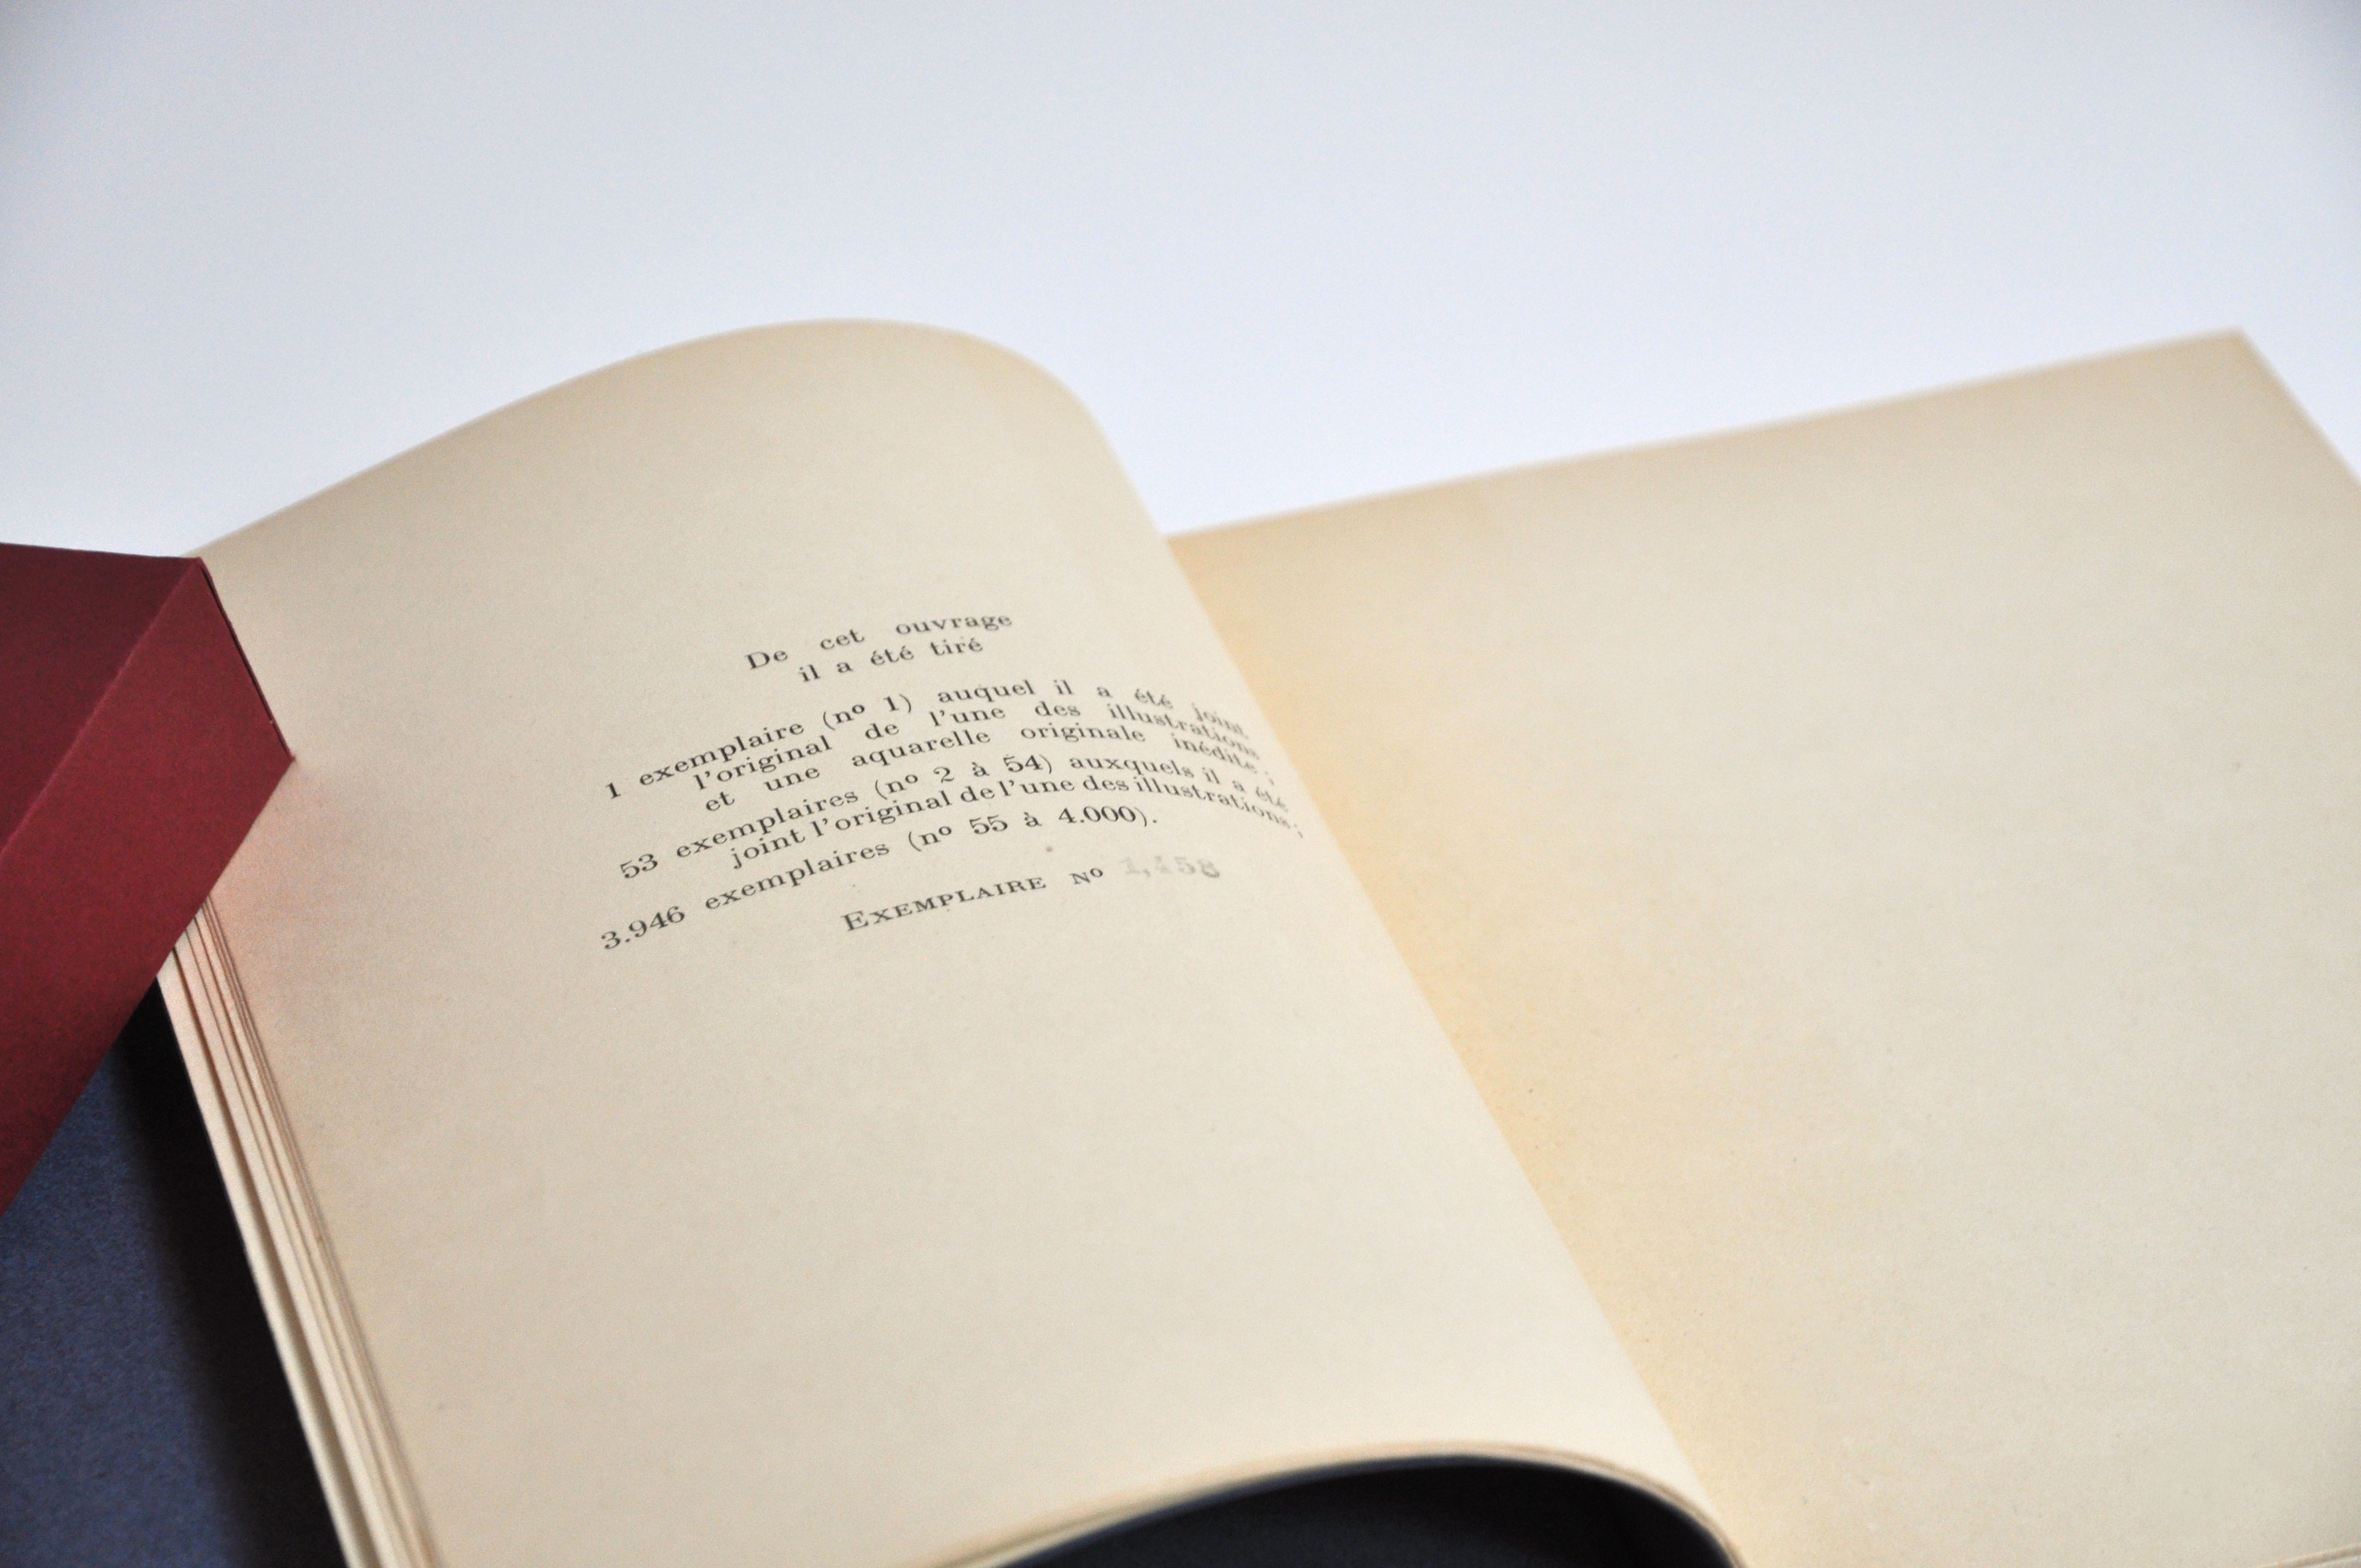 De cet ouvrage
il a été tiré
1 exemplaire (nº 1) auquel il a été joint
l'original de l'une des illustrations
et une aquarelle originale inédite ;
53 exemplaires (nº 2 à 54) auxquels il a été
joint l'original de l'une des illustrations ;
3.946 exemplaires (nº 55 à 4.000).
EXEMPLAIRE Nº